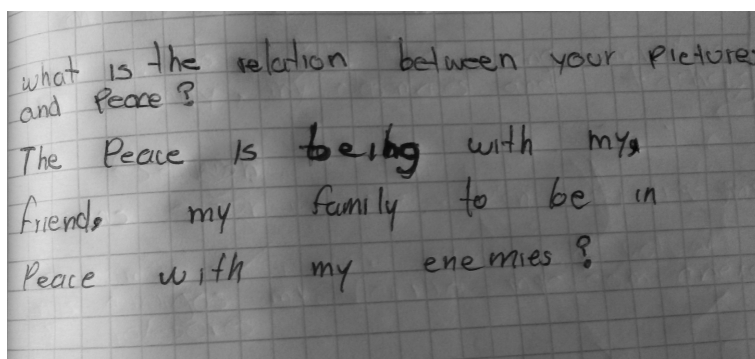 what is the relation between your picture
and Peace?
The Peace is being with my
friends my family to be in
Peace with my enemies?